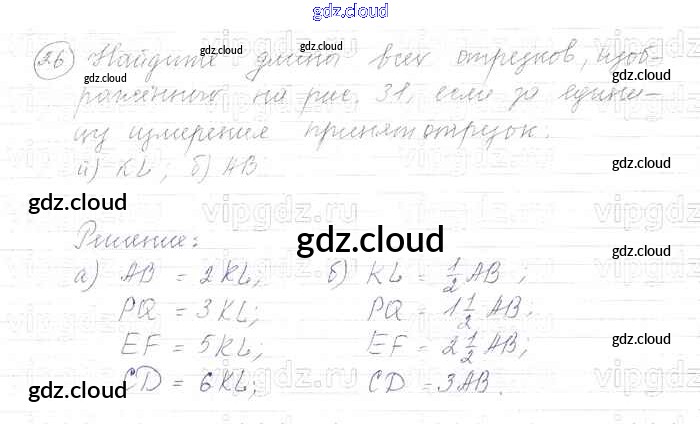 gdz.cloud
26) Найдите длины всех отрезков, изоб-
ражённых на рис. 31, если за едини-
цу измерения принят отрезок:
а) KL; б) AB
Решение:
а) AB = 2KL; б) KL = 1/2 AB;
PQ = 3KL; PQ = 1 1/2 AB;
EF = 5KL; EF = 2 1/2 AB;
CD = 6KL; CD = 3AB.
gdz.cloud
gdz.cloud
gdz.cloud
gdz.cloud
gdz.cloud
gdz.cloud
gdz.cloud
gdz.cloud
gdz.cloud
gdz.cloud
gdz.cloud